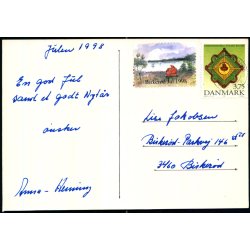 Julen 1998
En god Jul
samt et godt Nytår
ønsker
Anna - Henning
Birkerød 1998
3.75
DANMARK
Lise Jakobsen
Birkerød Parkvej 146
3460 Birkerød